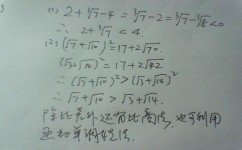 (1) 2+∛7-4 = ∛7-2 = ∛7-∛8 < 0
∴ 2+∛7 < 4.
(2) (√7+√10)² = 17+2√70.
(√3+√14)² = 17+2√42
∴ (√7+√10)² > (√3+√14)²
∴ √7+√10 > √3+√14.
除比差外还有比商法，也可利用
函数单调性法